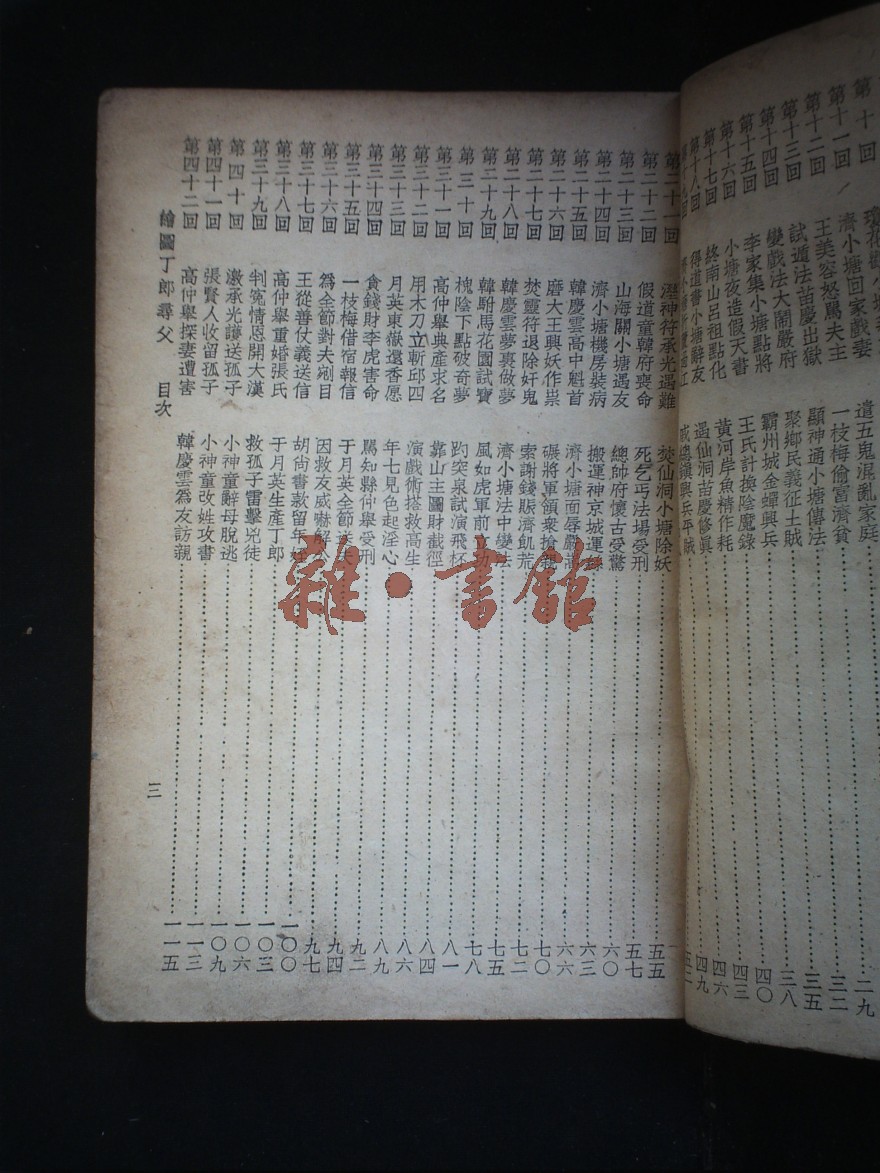 第十一回 王美容怒罵夫主 一枝梅偷富濟貧 三二
第十二回 試遁法苗慶出獄 顯神通小塘傳法 三五
第十三回 變戲法大鬧嚴府 聚鄉民義征土賊 三八
第十四回 李家集小塘點將 霸州城金蟬興兵 四〇
第十五回 小塘夜造假天書 王氏計換陰魔錄 四三
第十六回 終南山呂祖點化 黃河岸魚精作耗 四六
第十七回 得道書小塘辭友 遇仙洞苗慶修眞 四九
第二十一回 神符承光遇難 焚仙洞小塘除妖 五五
第二十二回 假道童韓府喪命 死乞丐法場受刑 五七
第二十三回 山海關小塘遇友 總帥府懷古受驚 六〇
第二十四回 濟小塘機房裝病 搬運神京城運 六三
第二十五回 韓慶雲高中魁首 濟小塘面辱嚴嵩 六六
第二十六回 磨大王興妖作祟 碾將軍領衆搶親 七〇
第二十七回 焚靈符退除奸鬼 索謝錢賑濟飢荒 七二
第二十八回 韓慶雲夢裏做夢 濟小塘法中變法 七五
第二十九回 韓駙馬花園試寶 風如虎軍前 七八
第三十回 槐陰下點破奇夢 趵突泉試演飛杯 八一
第三十一回 高仲舉典產求名 靠山主圖財截徑 八四
第三十二回 用木刀立斬邱四 演戲術搭救高生 八六
第三十三回 月英東嶽還香愿 年七見色起淫心 八九
第三十四回 貪錢財李虎害命 罵知縣仲舉受刑 九二
第三十五回 一枝梅借宿報信 于月英全節送夫 九四
第三十六回 爲全節對夫剜目 因救友威嚇解 九七
第三十七回 王從善仗義送信 胡尚書款留年姪 一〇〇
第三十八回 高仲舉重婚張氏 于月英生產丁郎 一〇三
第三十九回 判冤情恩開大漢 救孤子雷擊兇徒 一〇六
第四十回 激承光護送孤子 小神童辭母脫逃 一〇九
第四十一回 張賢人收留孤子 小神童改姓攻書 一一三
第四十二回 高仲舉探妻遭害 韓慶雲爲友訪親 一一五
繪圖丁郎尋父 目次 三
雜·書館